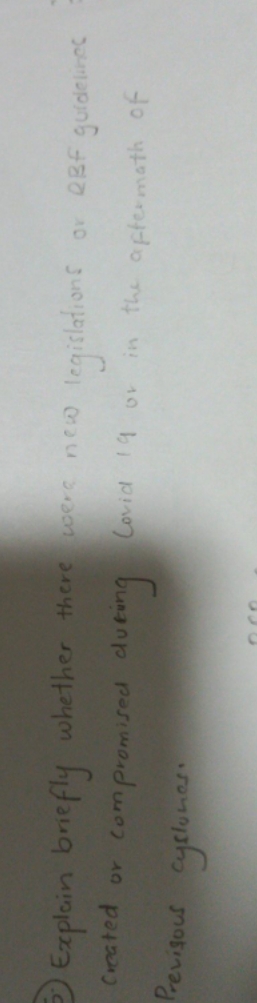 Explain briefly whether there were new legislations or RBF guidelines
created or compromised during Covid 19 or in the aftermath of
Previsous cyclones.